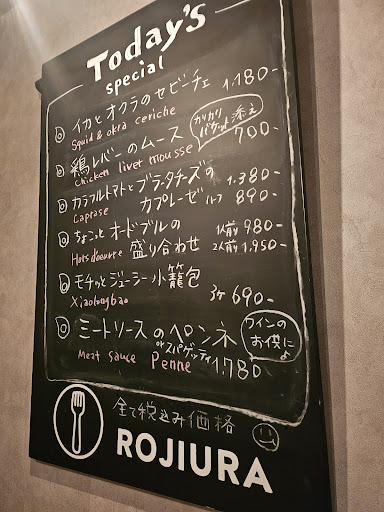 Today's
special
◎ イカとオクラのセビーチェ 1,180-
Squid & okra ceriche
カリカリ
バゲット添え
◎ 鶏レバーのムース 700-
Chicken liver mousse
◎ カラフルトマトとブラータチーズの 1,380-
Caprase カプレーゼ ハーフ 890-
◎ ちょこっとオードブルの 1人前 980-
Hors d'oeuvre 盛り合わせ 2人前 1,950-
◎ モチッとジューシー小籠包
Xiaolongbao 3ヶ 690-
◎ ミートソースのペンネ
orスパゲッティ
Meat sauce Penne 1,780
ワインの
お供に
♪
全て税込み価格
ROJIURA